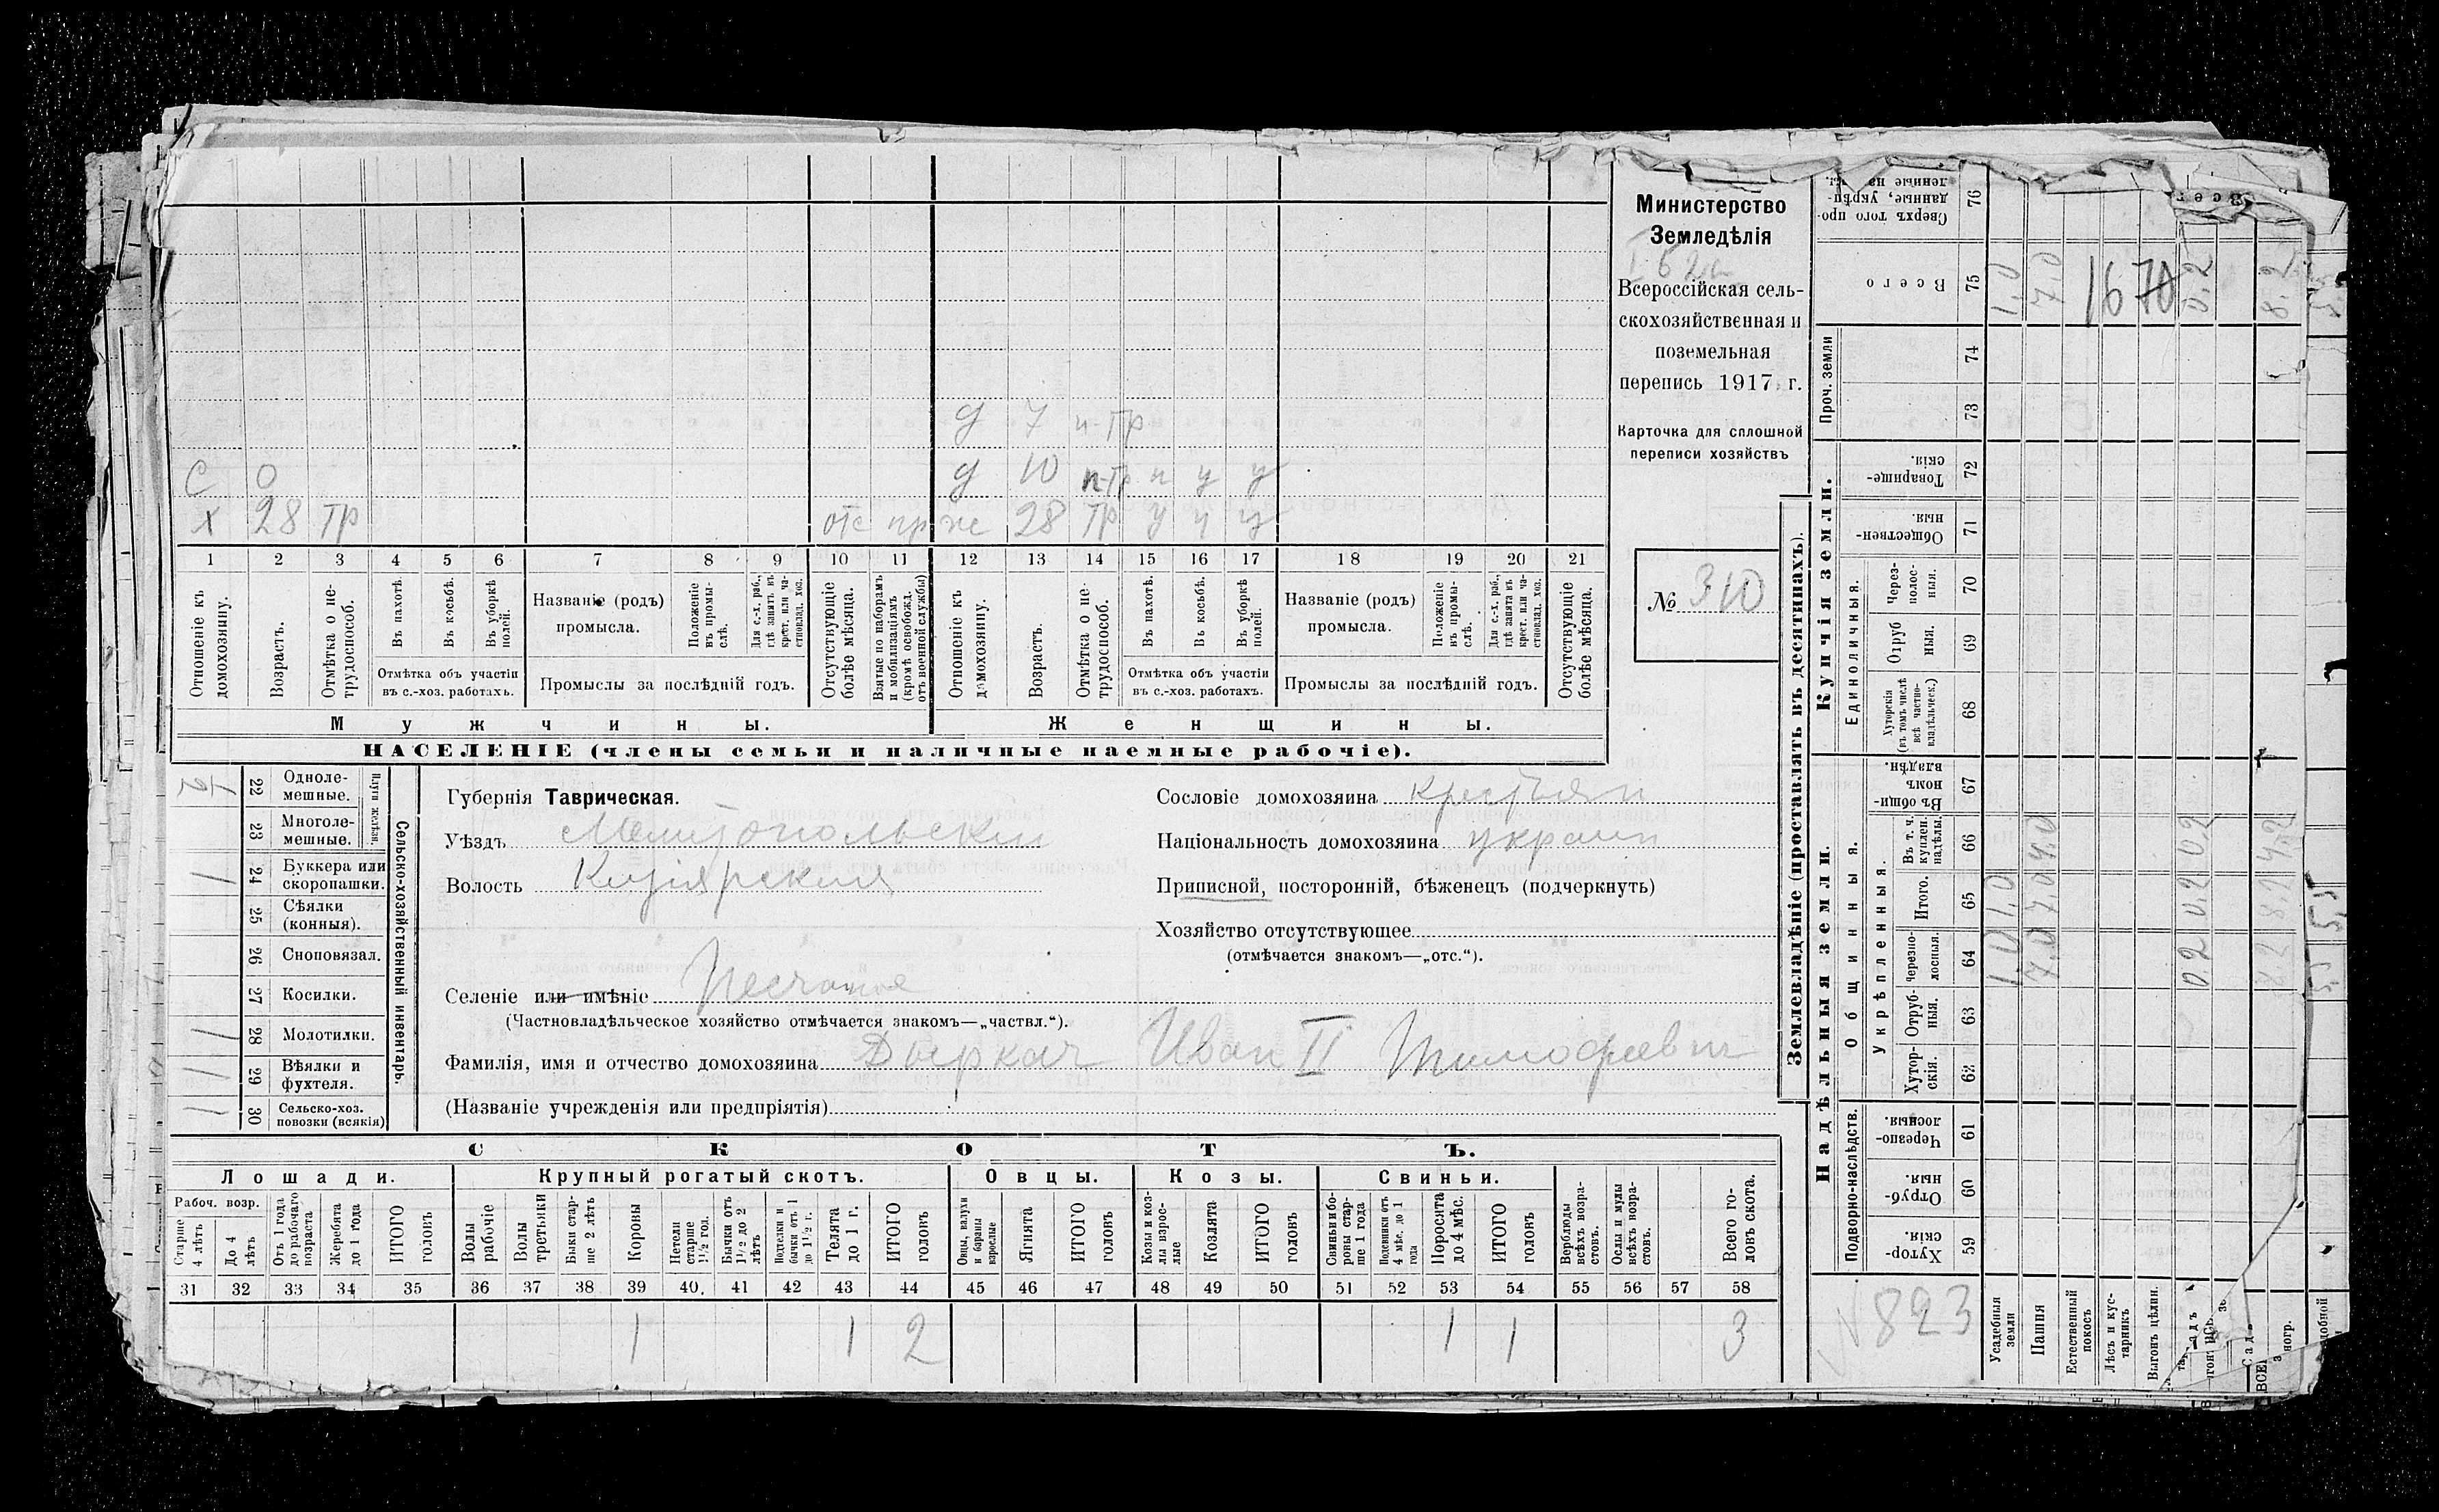 Министерство
Земледѣлія
Всероссійская сель-
скохозяйственная и
поземельная
перепись 1917 г.
Карточка для сплошной
переписи хозяйствъ
№ 310
д 7 н-тр
С 0 д 10 п-тр п у у
Х 28 тр отс пр ж 28 тр у у у
1 2 3 4 5 6 7 8 9 10 11 12 13 14 15 16 17 18 19 20 21
Отношеніе къ домохозяину.
Возрастъ.
Отмѣтка о не-трудоспособ.
Въ пахотѣ.
Въ косьбѣ.
Въ уборкѣ полей.
Отмѣтка объ участіи
въ с.-хоз. работахъ.
Названіе (родъ)
промысла.
Положеніе въ промы-слѣ.
Для с.-х. раб., гдѣ занятъ въ крест. или ча-стновлад. хоз.
Промыслы за послѣдній годъ.
Отсутствующіе болѣе мѣсяца.
Взятые по наборамъ и мобилизаціямъ (кромѣ освобожд. отъ военной службы)
Отношеніе къ домохозяину.
Возрастъ.
Отмѣтка о не-трудоспособ.
Въ пахотѣ.
Въ косьбѣ.
Въ уборкѣ полей.
Отмѣтка объ участіи
въ с.-хоз. работахъ.
Названіе (родъ)
промысла.
Положеніе въ промы-слѣ.
Для с.-х. раб., гдѣ занята въ крест. или ча-стновлад. хоз.
Промыслы за послѣдній годъ.
Отсутствующіе болѣе мѣсяца.
Мужчины. Женщины.
НАСЕЛЕНІЕ (члены семьи и наличные наемные рабочіе).
Сельско-хозяйственный инвентарь.
Плуги желѣзн.
22 Одноле-мешные.
23 Многоле-мешные.
24 Буккера или скоропашки. 1
25 Сѣялки (конныя).
26 Сноповязал.
27 Косилки.
28 Молотилки. 1
29 Вѣялки и фухтеля. 1
30 Сельско-хоз. повозки (всякія) 1
Губернія Таврическая.
Уѣздъ Мелитопольскии
Волость Кизіярския
Селеніе или имѣніе Песчаное
(Частновладѣльческое хозяйство отмѣчается знакомъ—„частвл.“).
Фамилія, имя и отчество домохозяина Дыркач Иван II Тимофеевич
(Названіе учрежденія или предпріятія)
Сословіе домохозяина крестьян
Національность домохозяина украин
Приписной, посторонній, бѣженецъ (подчеркнуть)
Хозяйство отсутствующее
(отмѣчается знакомъ—„отс.“).
СКОТЪ.
Лошади. Крупный рогатый скотъ. Овцы. Козы. Свиньи.
Рабоч. возр.
Старше 4 лѣтъ
До 4 лѣтъ
Отъ 1 года до рабочаго возраста
Жеребята до 1 года
ИТОГО головъ
Волы рабочіе
Волы третьяки
Быки стар-ше 2 лѣтъ
Коровы
Нетели старше 1½ гол.
Бычки отъ 1½ до 2 лѣтъ
Подтелки и бычки отъ 1 до 1½ г.
Телята до 1 г.
ИТОГО головъ
Овцы, валухи и бараны взрослые
Ягнята
ИТОГО головъ
Козы и коз-лы взрос-лые
Козлята
ИТОГО головъ
Свиньи и бо-ровы стар-ше 1 года
Подсвинки отъ 4 мѣс. до 1 года
Поросята до 4 мѣс.
ИТОГО головъ
Верблюды всѣхъ возра-стовъ.
Ослы и мулы всѣхъ возра-стовъ.
Всего го-ловъ скота.
31 32 33 34 35 36 37 38 39 40 41 42 43 44 45 46 47 48 49 50 51 52 53 54 55 56 57 58
1 1 2 1 1 3
Землевладѣніе (проставлять въ десятинахъ).
Надѣльныя земли. Купчія земли. Проч. земли
Подворно-наслѣдств. Общинныя. Единоличныя.
Укрѣпленныя.
59 Хутор-скія.
60 Отруб-ныя.
61 Черезпо-лосныя.
62 Хутор-скія.
63 Отруб-ныя.
64 Черезпо-лосныя.
65 Итого.
66 Въ т. ч. куплен. надѣлы.
67 Въ общи-нномъ владѣн.
68 Хуторскія (въ томъ числѣ всѣ частно-владѣльческ.)
69 Отруб ныя.
70 Через-полос-ныя.
71 Обществен-ныя.
72 Товарище-скія.
73
74
75 Всего
76 Сверхъ того про-данные, укрѣп-
№ 823
Усадебныя земли 1.0 1.0 1.0
Пашня 7.0 7.0 4.0 7.0
Естественный покосъ
Лѣсъ и кус-тарникъ
Выгонъ цѣлин.
0.2 0.2 0.2 0.2
8.2 8.2 4.2 8.2
1670